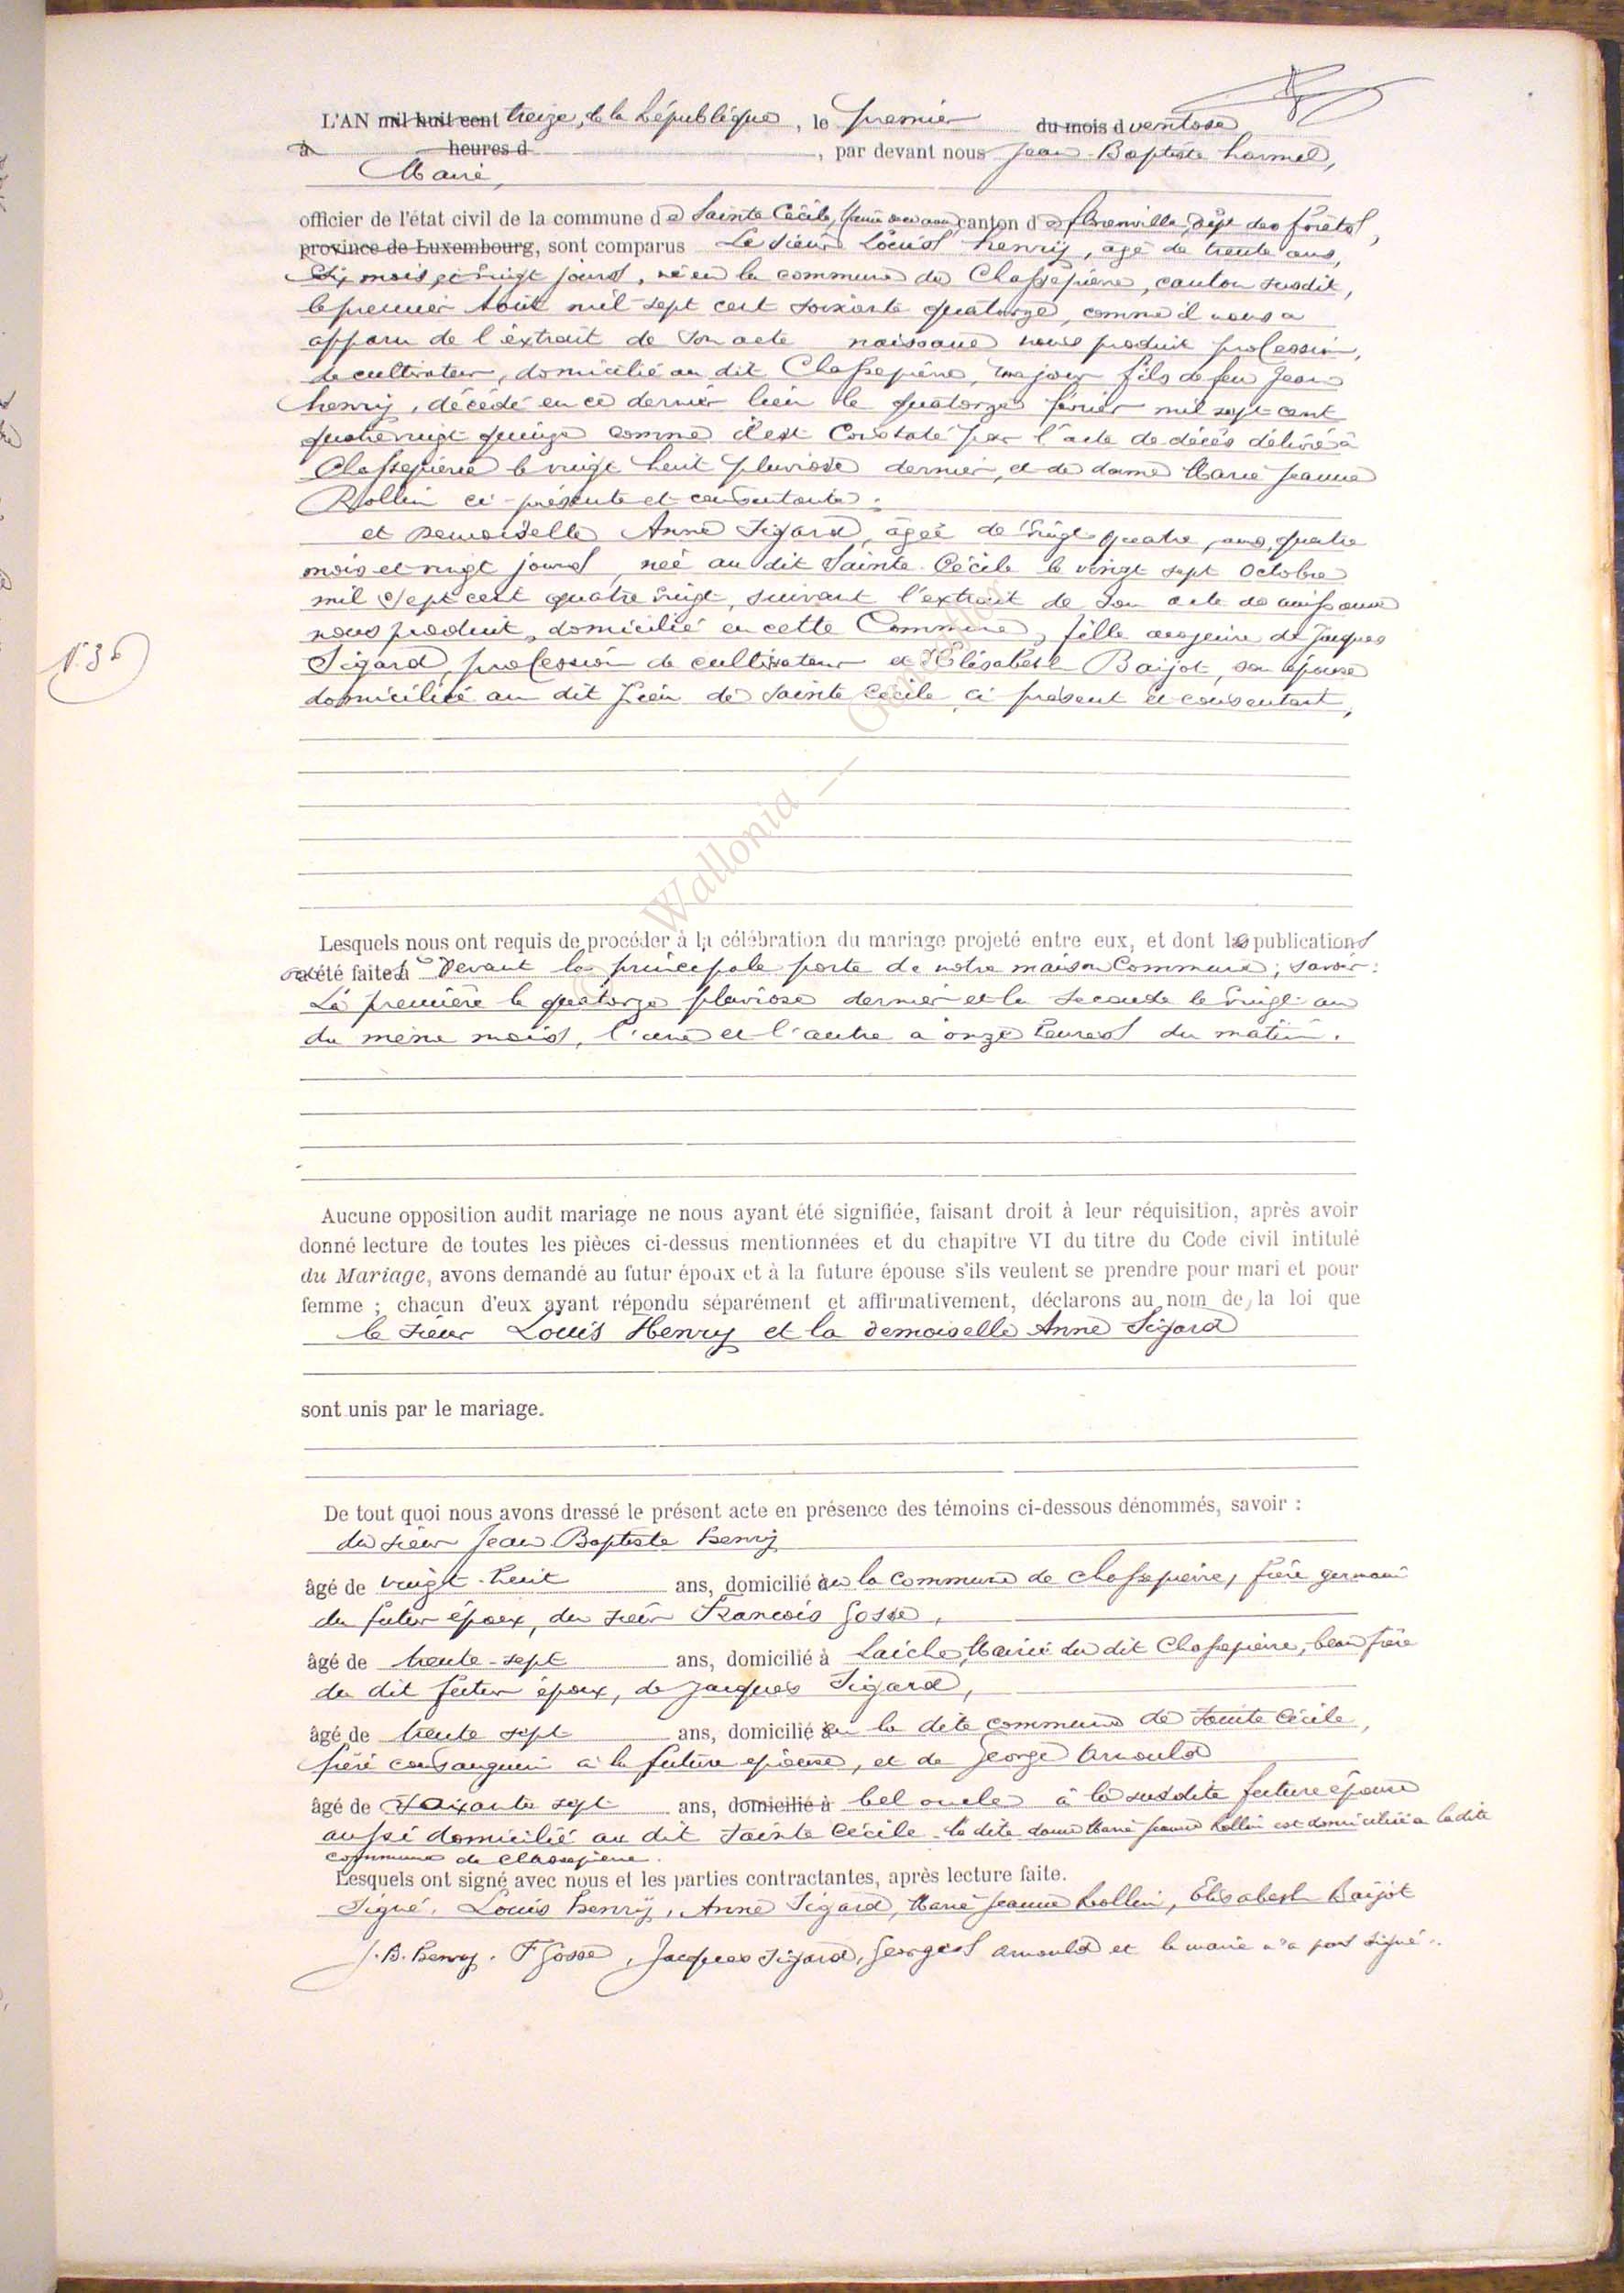 L'AN mil huit cent treize, de la République, le premier du mois d ventose
à heures d , par devant nous Jean-Baptiste harmel,
Maire,
officier de l'état civil de la commune de Sainte Cécile, canton de florenville, dépt des forêts,
province de Luxembourg, sont comparus Le sieur Louis henry, agé de trente ans,
Six mois et vingt jours, né en la commune de Chassepierre, canton susdit,
le premier Aout mil sept cent soixante quatorze, comme il nous a
apparu de l'éxtrait de son acte naissance nous produit profession,
de cultivateur, domicilié au dit Chassepierre, majeur fils de feu Jean
henry, décédé en ce dernier lieu le quatorze févrièr mil sept cent
quatre vingt quinze comme il est Constaté par l'acte de décès délivré à
Chassepierre le vingt huit pluviose dernier, et de dame Marie Jeanne
Rollin ci-présente et consentante;
et Demoiselle Anne Sigard, agée de vingt quatre, ans, quatre
mois et vingt jours, née au dit Sainte-Cécile le vingt sept Octobre
mil Sept cent quatre vingt, suivant l'extrait de son acte de naissance
nous produit, domicilié en cette Commune, fille majeure de Jacques
Sigard, profession de cultivateur et d'Elisabeth Baijot, son épouse
domicilié au dit lieu de Sainte Cécile ci présent et consentant,
N° 36
Wallonia —
Lesquels nous ont requis de procéder à la célébration du mariage projeté entre eux, et dont les publications
ont été faites à Devant la principale porte de notre maison Commune; savoir:
La première le quatorze pluviose dernier et la seconde le vingt un
du même mois, l'une et l'autre a onze heures du matin.
Aucune opposition audit mariage ne nous ayant été signifiée, faisant droit à leur réquisition, après avoir
donné lecture de toutes les pièces ci-dessus mentionnées et du chapitre VI du titre du Code civil intitulé
du Mariage, avons demandé au futur époux et à la future épouse s'ils veulent se prendre pour mari et pour
femme ; chacun d'eux ayant répondu séparément et affirmativement, déclarons au nom de la loi que
le sieur Louis Henry et la demoiselle Anne Sigard
sont unis par le mariage.
De tout quoi nous avons dressé le présent acte en présence des témoins ci-dessous dénommés, savoir :
du sieur Jean Baptiste henry
âgé de vingt-huit ans, domicilié en la commune de chassepierre, frère germain
du futur époux, du sieur Francois Gosse,
âgé de trente-sept ans, domicilié à Laiche, Mairie du dit Chassepierre, beau frère
du dit futur époux, de Jacques Sigard,
âgé de trente sept ans, domicilié en la dite commune de Sainte Cécile,
frère consanguin à la future épouse, et de George Arnould
âgé de Soixante sept ans, domicilié à bel oncle à la susdite future épouse
aussi domicilié au dit Sainte Cécile la dite dame Marie Jeanne Rollin est domiciliée a la dite
commune de Chassepierre.
Lesquels ont signé avec nous et les parties contractantes, après lecture faite.
Signé, Louis henry, Anne Sigard, Marie Jeanne Rollin, Elisabesth Baijot
J.B. henry. F Gosse, Jacques Sigard, Georges Arnould et le maire n'a pas signé.